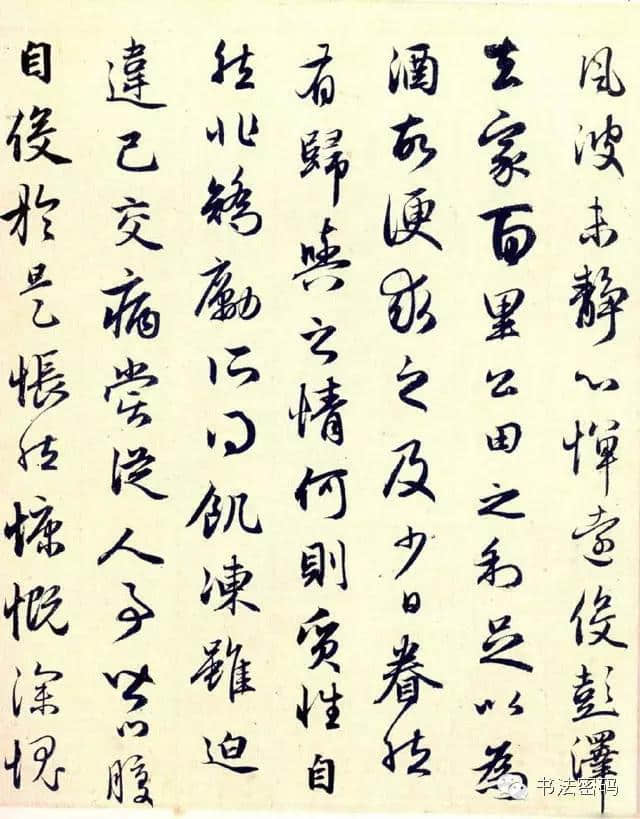 風波未靜心憚遠役彭澤
去家百里公田之利足以為
酒故便求之及少日眷然
有歸與之情何則質性自
然非矯勵所得飢凍雖迫
違己交病嘗從人事皆口腹
自役於是悵然慷慨深愧
书法密码